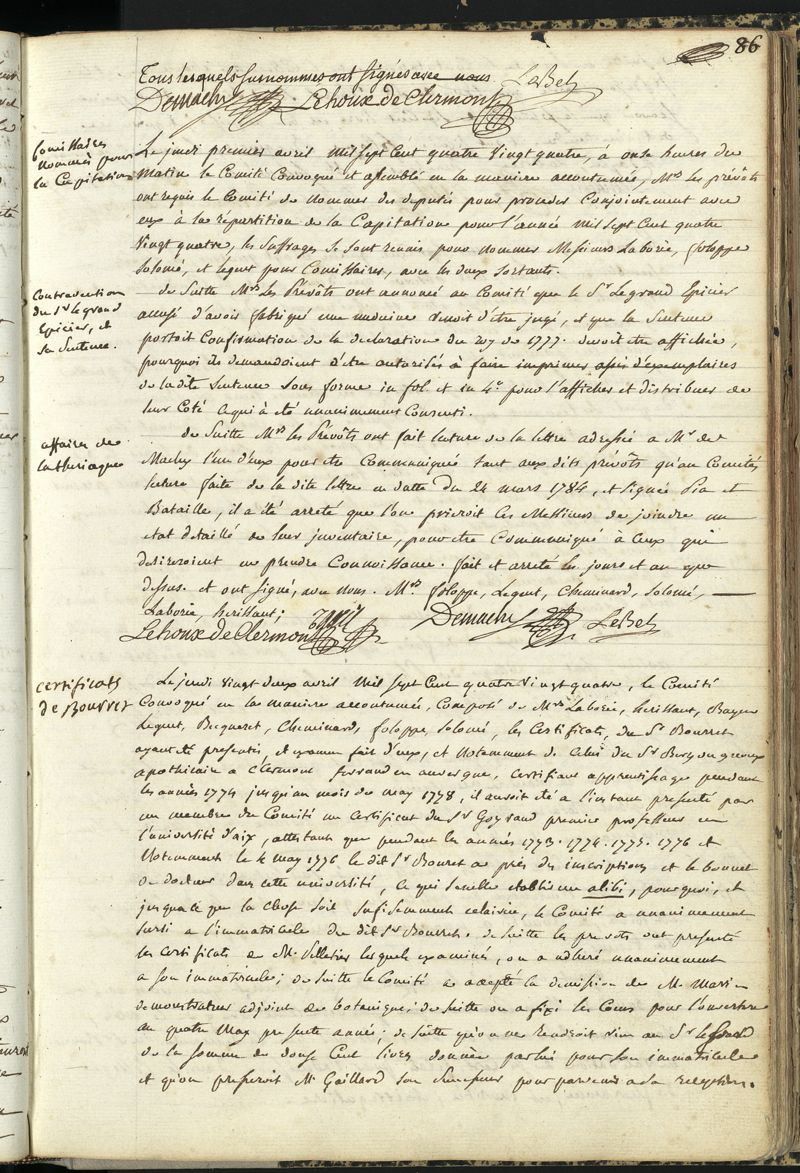 86
Tous lesquels surnommés ont signés avec nous LeBel
Demachy Lehoux de Clermont
Comissaires
nommés pour
la Capitation
Le jeudi premier avril mil sept Cent quatre vingt quatre, à onze heures du
Matin le Comité Convoqué et assemblé en la maniere accoutumée, Mrs les prévôts
ont requis le Comité de nommer des deputés pour proceder Conjointement avec
eux à la repartition de la Capitation pour l'année mil sept Cent quatre
Vingt quatre, les suffrages se sont reunis pour nommer Messieurs Laborie, foloppe
Solomé, et Lequet pour Comissaires, avec les deux sortants.
Contravention
du Sr le grand
Epicier, et
sa Sentence.
de Suitte Mrs Les Prévôts ont annoncé au Comité que le Sr Legrand Epicier
accusé d'avoir fabriqué une medecine venoit d'être jugé, et que la Sentence
portoit Confirmation de la declaration du Roy de 1777. devoit être affichée,
pourquoi ils demandoient d'être autorisés à faire imprimer assés d'exemplaires
de la dite Sentence sous forme in fol. et in 4° pour l'afficher et distribuer de
leur Coté à qui à été unanimement Consenti.
affaire de
la theriaque
de Suitte Mrs les Prévôts ont fait lecture de la lettre adressée a Mr de
Machy l'un d'eux pour être Communiqué tant aux dits prévôts qu'au Comité,
lecture faite de la dite lettre en datte du 24 mars 1784, et signée Pia et
Bataille, il a été arreté que l'on prieroit Ces Messieurs de joindre un
etat detaillé de leur inventaire, pour être Communiqué à Ceux qui
desireroient en prendre Connoissance. fait et arreté les jours et an que
dessus. et ont signé, avec nous. Mrs foloppe, Lequet, Cheminard, Solomé,
Laborie, herissant;
Lehoux de Clermont Demachy LeBel
certificats
de Bourret
Le jeudi vingt deux avril Mil sept Cent quatre vingt quatre, le Comité
Convoqué en la maniere accoutumée, Composé de Mrs Laborie, herissant, Bayen
Lequet, Becqueret, Cheminard, foloppe, Solomé, les Certificats du Sr Bourret
ayant été presentés, et examen fait d'eux, et Notemment de Celui du Sr
apothicaire a Clermont ferrand en auvergne, certifiant apprentissage pendant
les années 1774 jusqu'au mois de may 1778, il auroit été a l'instant presenté par
un membre du Comité un Certificat du Sr Goyrand premier professeur en
l'université d'aix, attestant que pendant les années 1773. 1774. 1775. 1776 et
Notemment le 4 may 1776 le dit Sr Bourret a pris des inscriptions et le bonnet
de docteur dans cette université, Ce qui semble etablir un alibi, pourquoi, et
jusqu'a ce que la Chose soit suffisemment eclaircie, le Comité a unanimement
sursi a l'immatricule du dit Sr Bourret. de Suitte les prevots ont presenté
les certificats de M. Pelletier lesquels examinés, on a adhéré unanimement
a son immatricule; de suitte le Comité a accepté la demission de M. Marin
demonstrateur adjoint de botanique; de suitte on a fixé les Cours pour l'ouverture
au quatre May presente année: de suitte qu'on ne rendroit rien au Sr le Grand
de la somme de douze Cent livres donnée par lui pour son immatricule
et qu'on presseroit Mr Gaillard son successeur pour parvenir a sa reception.